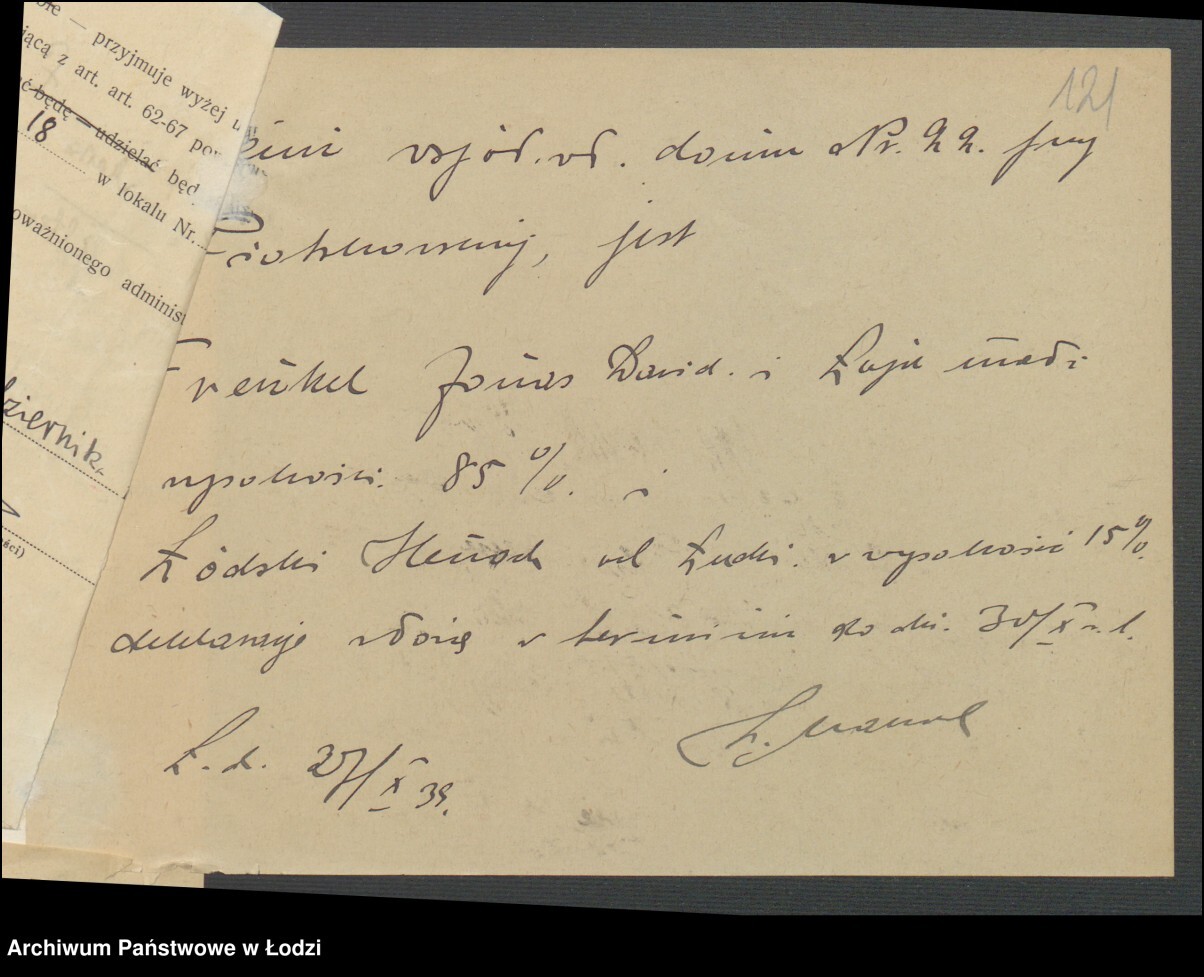 — przyjmuje wyżej
z art. art. 62-67
będę — udzielać będ
18
w lokalu Nr.
oważnionego adminis
ziernik
ści)
121
współwł. domu Nr. 22. przy
Piotrkowskiej, jest
Frenkel Jonas Dawid. i Łaja małż:
wysokości. 85 %. i
Łódzki Henoch vel Łudki. w wysokości 15%.
deklarację złożę w terminie do dn. 30/X r. b.
Ł. d. 27/X 39.
Archiwum Państwowe w Łodzi